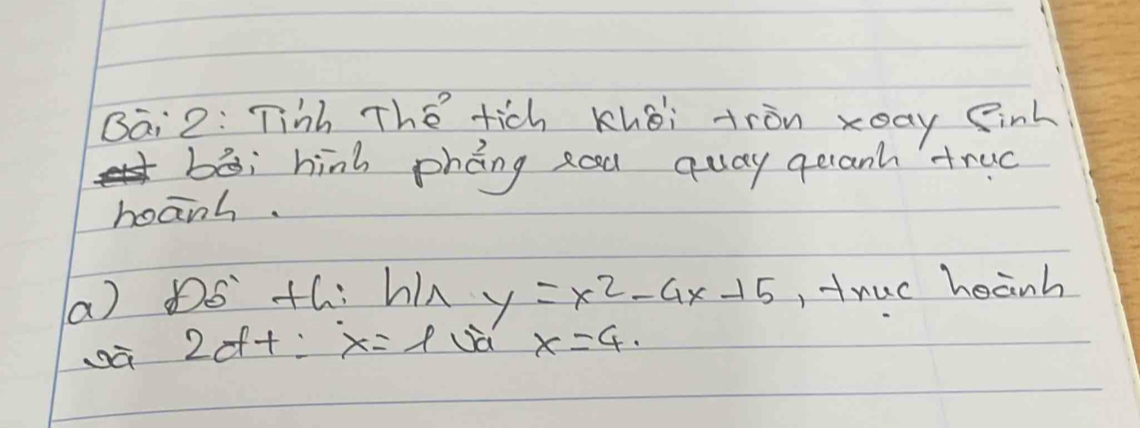 Bài 2: Tính Thể tích khối tròn xoay sinh
bởi hình phẳng sau quay quanh trục
hoành.
a) Đồ thị h/s y = x² - 4x + 5, trục hoành
và 2đt: x = 1 và x = 4.